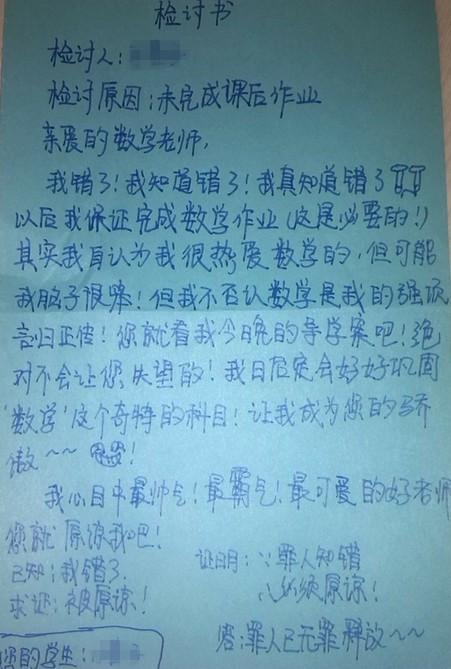 检讨书
检讨人:
检讨原因:未完成课后作业
亲爱的数学老师,
我错了!我知道错了!我真知道错了TT
以后我保证完成数学作业(这是必要的!)
其实我自认为我很热爱数学的,但可能
我脑子很笨!但我不否认数学是我的强项
言归正传!您就看我今晚的导学案吧!绝
对不会让您失望的!我日后定会好好巩固
'数学'这个奇特的科目!让我成为您的骄
傲~~!
我心目中最帅气!最霸气!最可爱的好老师
您就原谅我吧!
已知:我错了.
求证:被原谅!
证明:∵罪人知错
∴必须原谅!
答:罪人已无罪释放~~
您的学生: